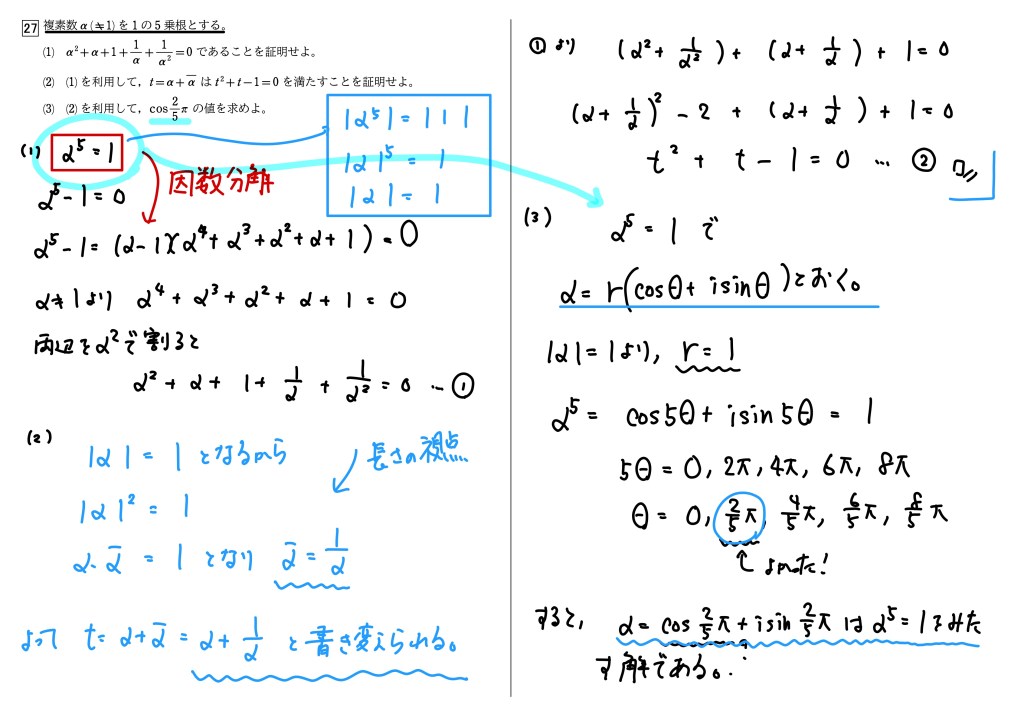 27 複素数 α (≠1) を 1 の 5 乗根とする。
(1) α²+α+1+1/α+1/α²=0 であることを証明せよ。
(2) (1) を利用して，t=α+ᾱ は t²+t−1=0 を満たすことを証明せよ。
(3) (2) を利用して，cos 2/5 π の値を求めよ。
(1) α⁵=1
|α⁵|=|1|
|α|⁵=1
|α|=1
因数分解
α⁵−1=0
α⁵−1=(α−1)(α⁴+α³+α²+α+1)=0
α≠1より α⁴+α³+α²+α+1=0
両辺をα²で割ると
α²+α+1+1/α+1/α²=0 … ①
(2)
|α|=1となるから
長さの視点
|α|²=1
α·ᾱ=1となり ᾱ=1/α
よって t=α+ᾱ=α+1/αと書き変えられる。
①より (α²+1/α²)+(α+1/α)+1=0
(α+1/α)²−2+(α+1/α)+1=0
t²+t−1=0 … ②
(3)
α⁵=1で
α=r(cosθ+isinθ)とおく。
|α|=1より, r=1
α⁵=cos5θ+isin5θ=1
5θ=0, 2π, 4π, 6π, 8π
θ=0, 2/5π, 4/5π, 6/5π, 8/5π
↑よめた!
すると, α=cos2/5π+isin2/5πはα⁵=1をみた
す解である。